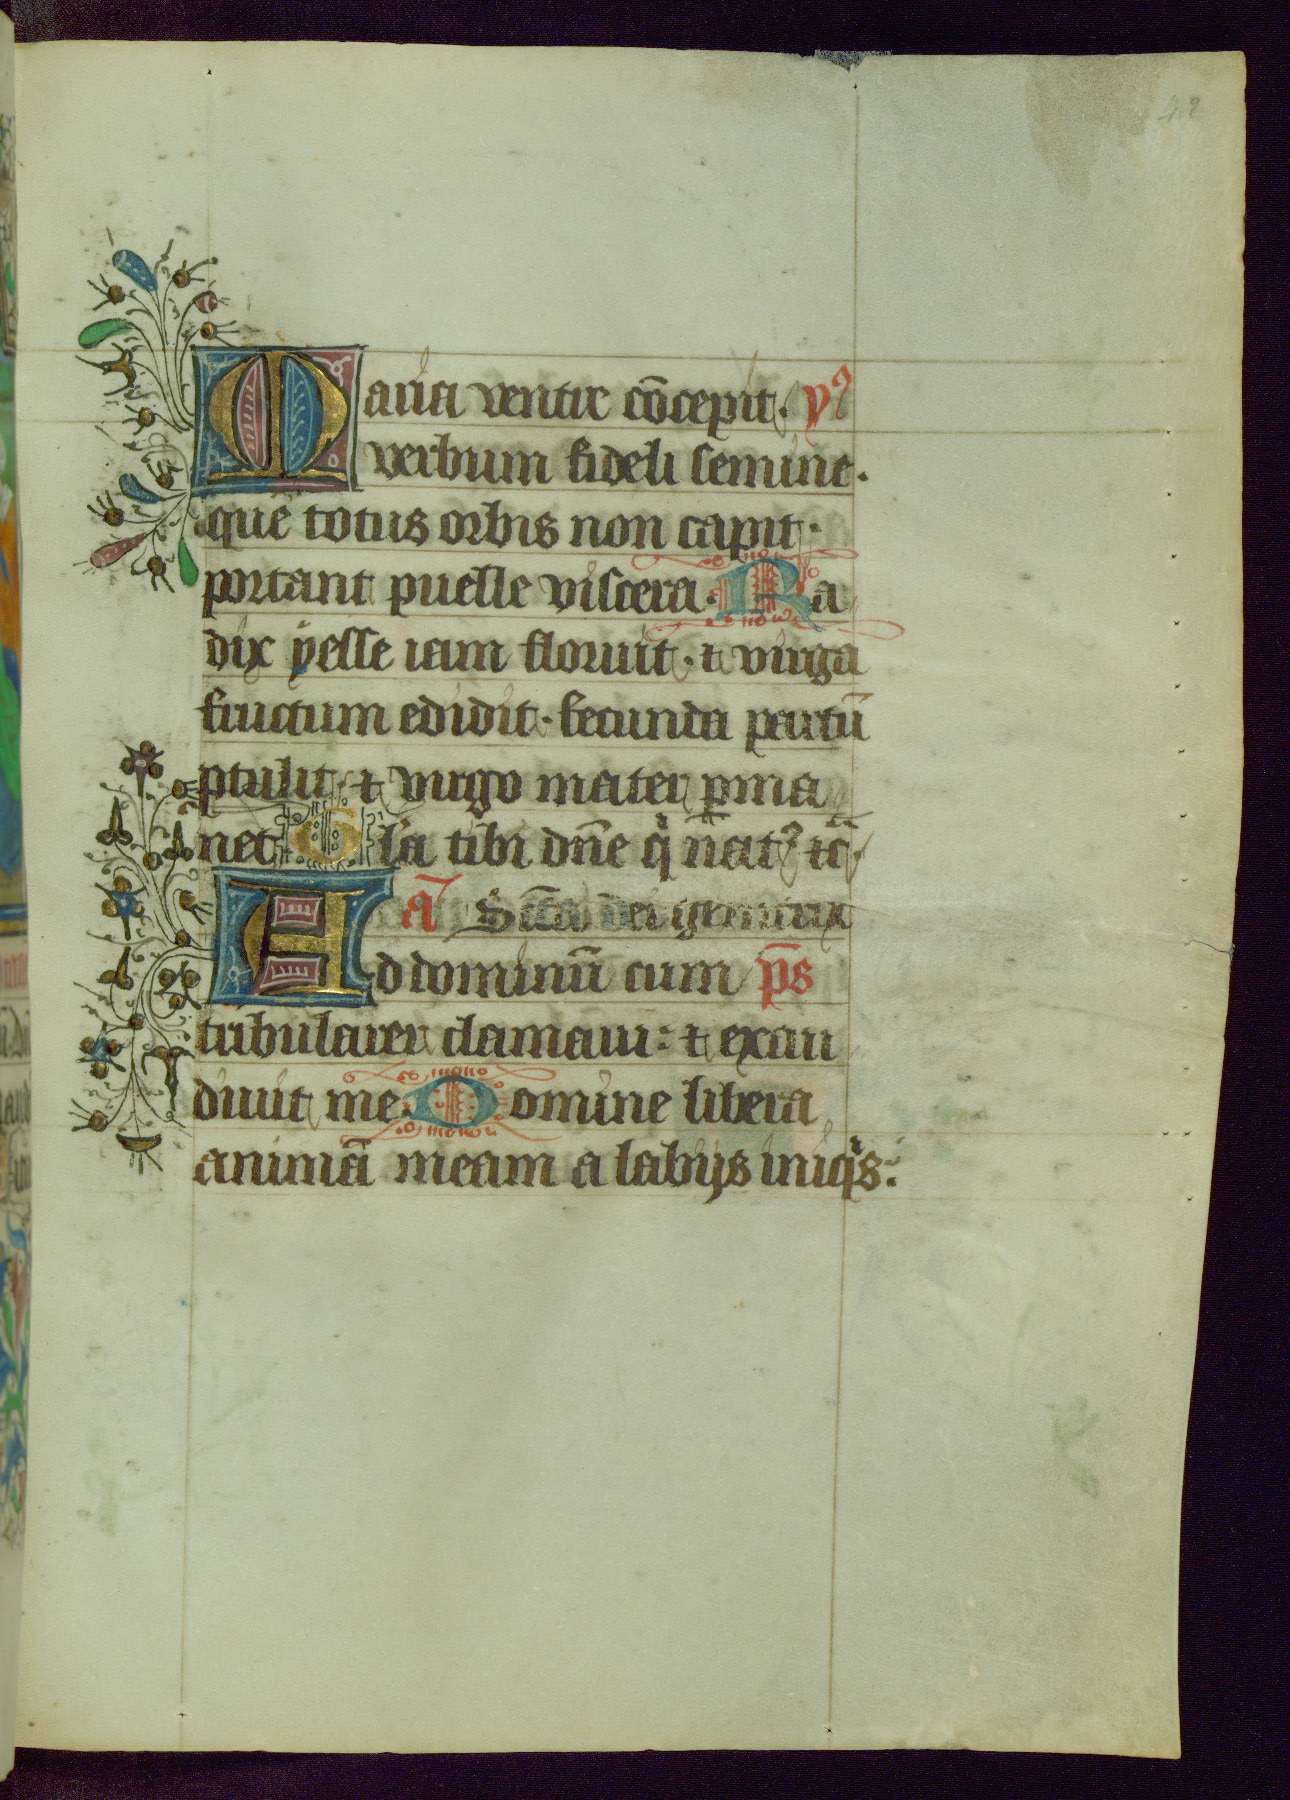 42
Maria ventre cōcepit. yꝰ
verbum fideli semine.
quē totus orbis non capit.
portant puelle viscera. Ra
dix yesse iam floruit. ⁊ virga
fructum edidit. fecunda partū
ptulit ⁊ virgo mater ꝑma
net Gl̄a tibi dn̄e qͥ natꝰ ⁊c̄.
a Sc̄a dei genitrix
Ad dominū cum p̄s
tribularer clamaui: ⁊ exau
diuit me. Domine libera
animā meam a labijs iniqͥs: